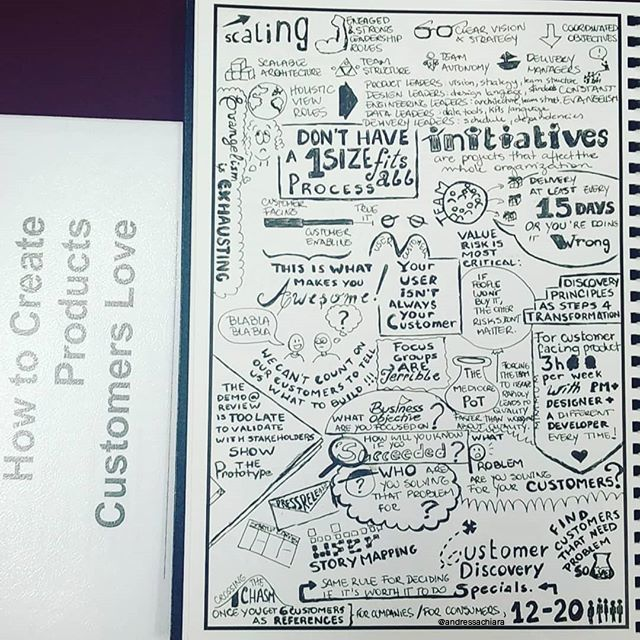 How to Create
Products
Customers Love
scaling
ENGAGED
& STRONG
LEADERSHIP
ROLES
CLEAR VISION
& STRATEGY
COORDINATED
OBJECTIVES
SCALABLE
ARCHITECTURE
TEAM
STRUCTURE
TEAM
AUTONOMY
DELIVERY
MANAGERS
HOLISTIC
VIEW
ROLES
PRODUCT LEADERS: vision, strategy, team structure
DESIGN LEADERS: design language
ENGINEERING LEADERS: architecture, team struct
DATA LEADERS: data tools, KPIs language
DELIVERY LEADERS: schedule, dependencies
CONSTANT
EVANGELISM
Evangelism
is EXHAUSTING
DON'T HAVE
A 1 SIZE fits
all
PROCESS
initiatives
are projects that affect the
whole organization
CUSTOMER
FACING
CUSTOMER
ENABLING
TEAM
DELIVERY
AT LEAST EVERY
15 DAYS
OR YOU'RE DOING
IT Wrong
THIS IS WHAT
MAKES YOU
Awesome!
YOUR
USER
ISN'T
ALWAYS
YOUR
Customer
VALUE
RISK IS
MOST
CRITICAL:
IF
PEOPLE
WON'T
BUY IT,
THE OTHER
RISKS DON'T
MATTER.
DISCOVERY
PRINCIPLES
AS STEPS 4
TRANSFORMATION
BLABLA
BLABLA
?
WE CAN'T COUNT ON
OUR CUSTOMERS TO TELL
US WHAT TO BUILD!!!
FOCUS
GROUPS
ARE
Terrible
THE
MEDIOCRE
POT
For customer
facing product
3h
per week
with PM+
DESIGNER +
A DIFFERENT
DEVELOPER
EVERY TIME!
THE
DEMO @
REVIEW
IS TOO LATE
TO VALIDATE
WITH STAKEHOLDERS
SHOW
THE
Prototype
WHAT Business
Objective
ARE YOU FOCUSED ON?
HOW WILL YOU KNOW
IF YOU
Succeeded?
WHAT
PROBLEM
ARE YOU SOLVING
FOR YOUR CUSTOMERS?
WHO ARE
YOU SOLVING
THAT PROBLEM
FOR
?
PRESS RELEASE
USER
STORY MAPPING
Customer
Discovery
Specials.
FIND
CUSTOMERS
THAT NEED
PROBLEM
SOLVED
CROSSING
THE
CHASM
SAME RULE FOR DECIDING
IF IT'S WORTH IT TO DO
ONCE YOU GET 6 CUSTOMERS
AS REFERENCES
FOR COMPANIES / FOR CONSUMERS,
12-20
@andressachiara